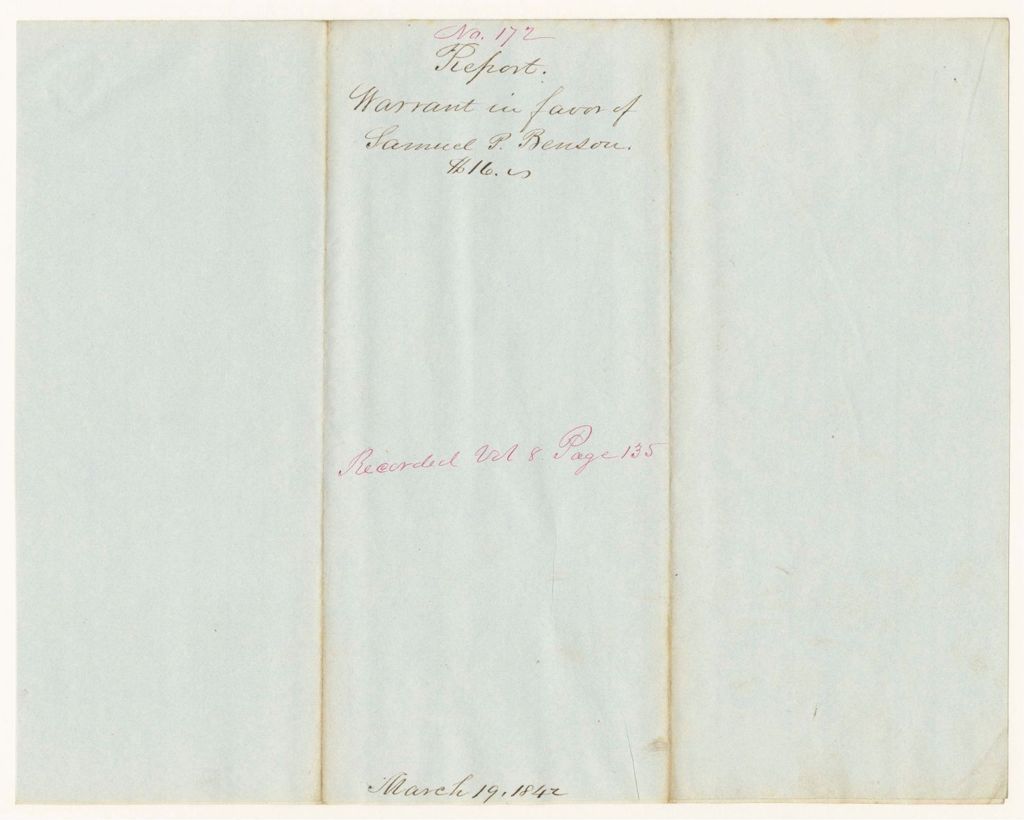 No. 172
Report.
Warrant in favor of
Samuel P. Benson.
$16.
Recorded Vol 8 Page 135
March 19, 1842